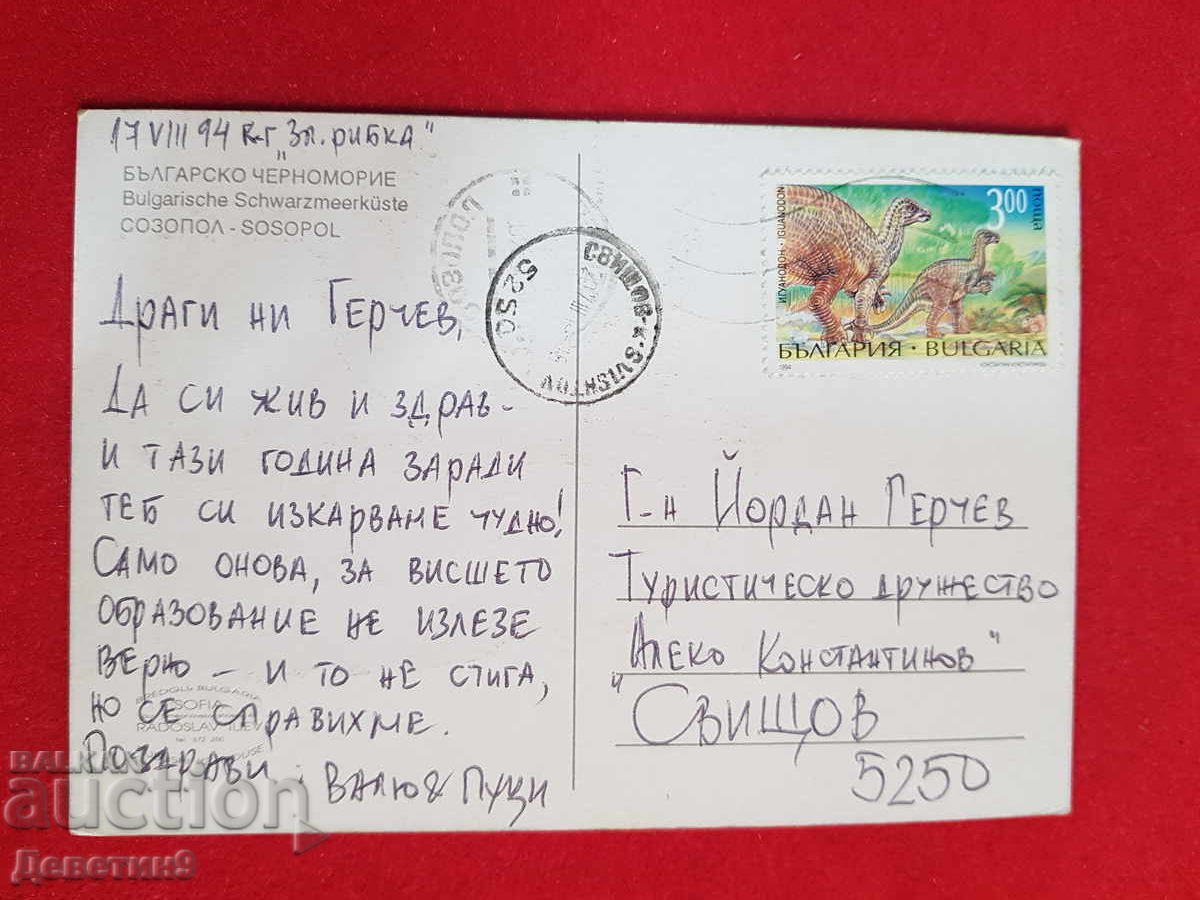 17 VIII 94 К-Г „Зл. РИБКА"
БЪЛГАРСКО ЧЕРНОМОРИЕ
Bulgarische Schwarzmeerküste
СОЗОПОЛ - SOSOPOL
ДРАГИ НИ ГЕРЧЕВ,
ДА СИ ЖИВ И ЗДРАВ -
И ТАЗИ ГОДИНА ЗАРАДИ
ТЕБ СИ ИЗКАРВАМЕ ЧУДНО!
САМО ОНОВА, ЗА ВИСШЕТО
ОБРАЗОВАНИЕ НЕ ИЗЛЕЗЕ
ВЕРНО - И ТО НЕ СТИГА,
НО СЕ СПРАВИХМЕ.
ПОЗДРАВИ: ВАЛЮ & ПУЦИ
SOFIA
RADOSLAV ILIEV
СВИЩОВ - к. SVISHTOV
5250
ИГУАНОДОН · IGUANODON
3.00
поща
БЪЛГАРИЯ · BULGARIA
1994
Г-Н ЙОРДАН ГЕРЧЕВ
ТУРИСТИЧЕСКО ДРУЖЕСТВО
„АЛЕКО КОНСТАНТИНОВ"
СВИЩОВ
5250
BALKAN
auction
Деветин9